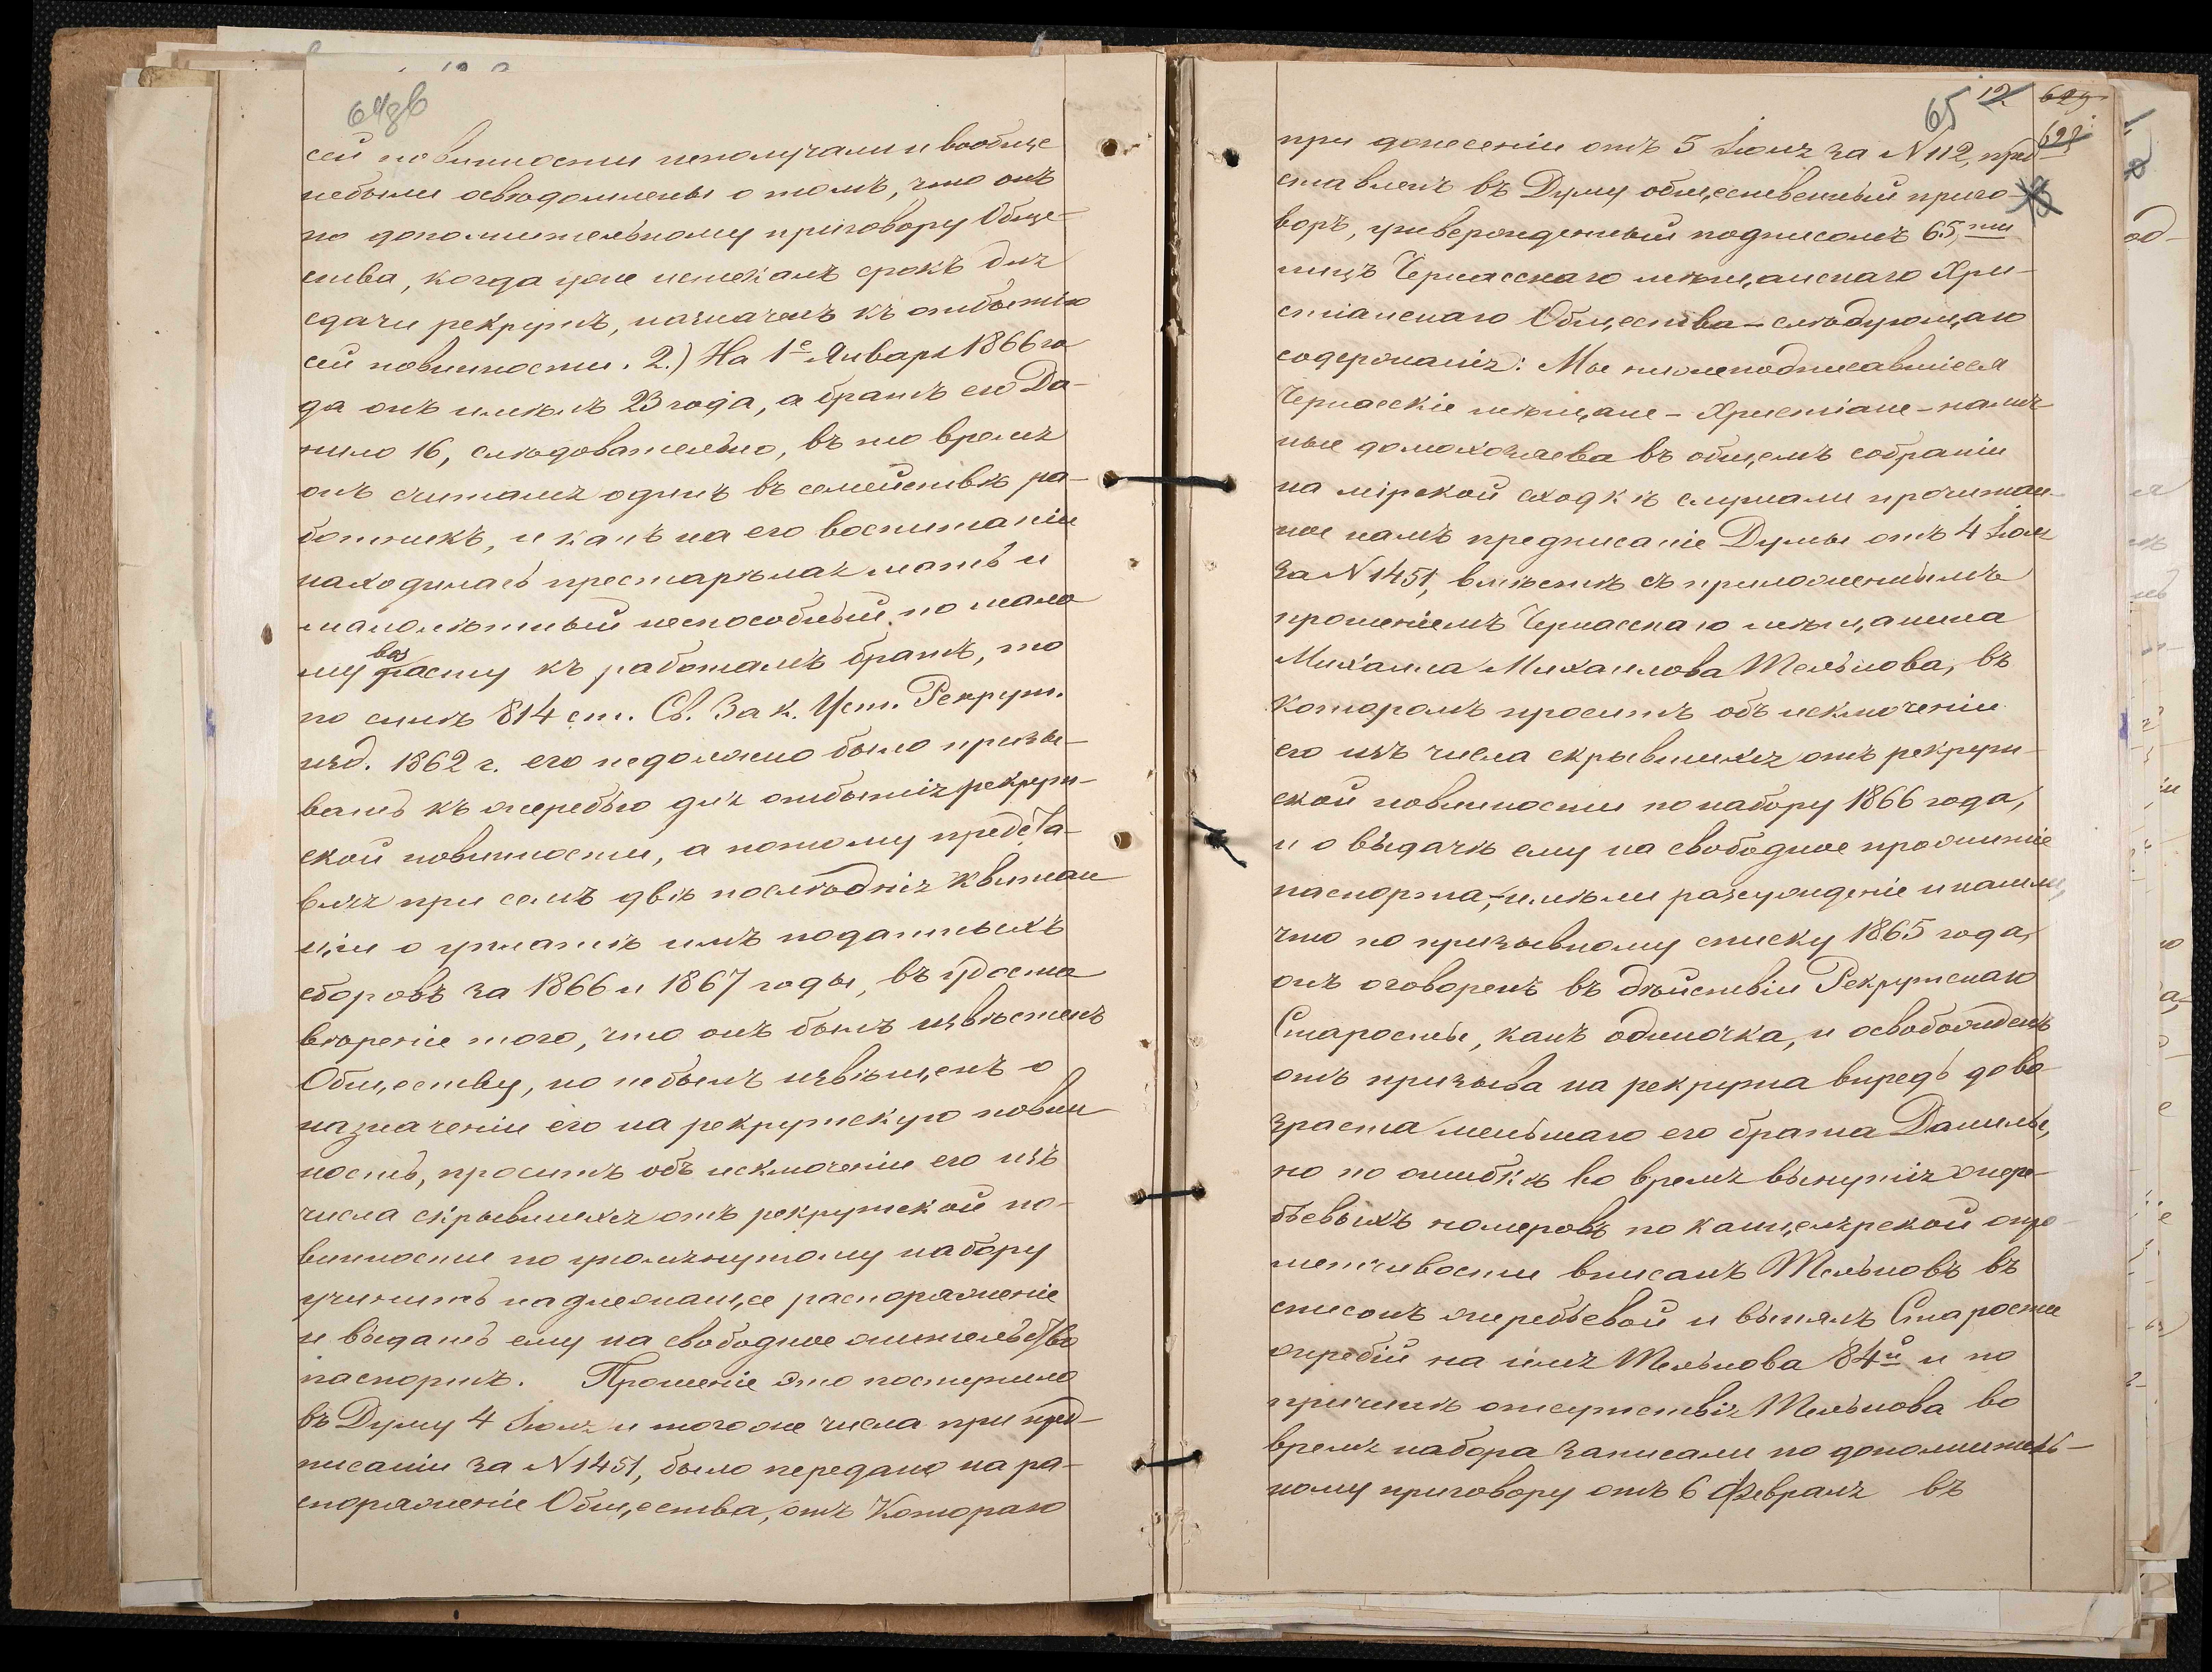 64зв
сей повинности неполучали и вообще
небыли освѣдомлены о томъ, что онъ
по дополнительному приговору Обще-
ства, когда уже истекалъ срокъ для
сдачи рекрутъ, назначенъ къ отбытію
сей повинности. 2.) На 1е Января 1866 го
да онъ имѣлъ 23 года, а братъ его Да-
нило 16, слѣдовательно, въ то время
онъ считался одинъ въ семействѣ ра-
ботникъ, и какъ на его воспитаніи
находилась престарѣлая мать и
малолѣтный неспособный по мало
му возрасту къ работамъ братъ, то
по силѣ 814 ст. Св. Зак. Уст. Рекрут.
изд. 1862 г. его недолжно было призы-
вать къ жеребью для отбытія рекрут-
ской повинности, а потому предста-
вляя при семъ двѣ послѣднія квитан
ціи о уплатѣ имъ податныхъ
сборовъ за 1866 и 1867 годы, въ удосто
вѣреніе того, что онъ былъ извѣстенъ
Обществу, но небылъ извѣщенъ о
назначеніи его на рекрутскую повин
ность, проситъ объ исключеніи его изъ
числа скрывшихся отъ рекрутской по-
винности по упомянутому набору
учинить надлежащее распоряженіе
и выдать ему на свободное жительство
паспортъ. Прошеніе это поступило
въ Думу 4 Іюля и того же числа при пред-
писаніи за N 1451, было передано на ра-
споряженіе Общества, отъ Котораго
65 12 629
628
при донесеніи отъ 5 Іюля за N 112, пред
ставленъ въ Думу общественный приго-
воръ, утвержденный подписомъ 65,ти
лицъ Черкасскаго мѣщанскаго Хри-
стіанскаго Общества – слѣдующаго
содержанія: Мы нижеподписавшіеся
Черкасскіе мѣщане – Христіане – налич
ные домохозяева въ общемъ собраніи
на мірской сходкѣ слушали прочитан-
ное намъ предписаніе Думы отъ 4 Іюля
за N 1451, вмѣстѣ съ приложеннымъ
прошеніемъ Черкасскаго мѣщанина
Михаила Михаилова Тельнова, въ
Которомъ проситъ объ исключеніи
его изъ числа скрывшихся отъ рекрут-
ской повинности по набору 1866 года,
и о выдачѣ ему на свободное прожитіе
паспорта, – имѣли разсужденіе и нашли,
что по призывному списку 1865 года,
онъ оговоренъ въ дѣйствіи Рекрутскаго
Старосты, какъ одиночка, и освобожденъ
отъ призыва на рекрута впредь до во
зраста меньшаго его брата Данилы,
но по ошибкѣ во время вынутія жере-
бьевыхъ номеровъ по канцелярской опро-
метчивости вписанъ Тельновъ въ
списокъ жеребьевой и вынялъ Староста
жребій на имя Тельнова 84й и по
причинѣ отсутствія Тельнова во
время набора записали по дополнитель-
ному приговору отъ 6 Февраля въ